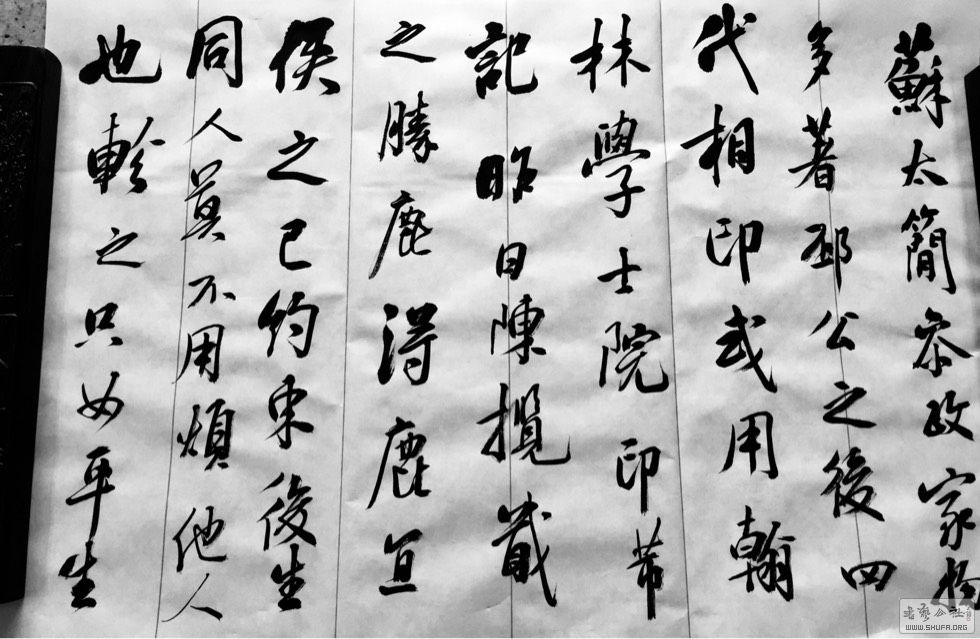 蘇太簡參政家物
多著邳公之後四
代相印或用翰
林學士院印芾
記昨日陳攬戢
之勝鹿得鹿宜
俟之已約束後生
同人莫不用煩他人
也軫之只如平生
书艺公社
WWW.SHUFA.ORG